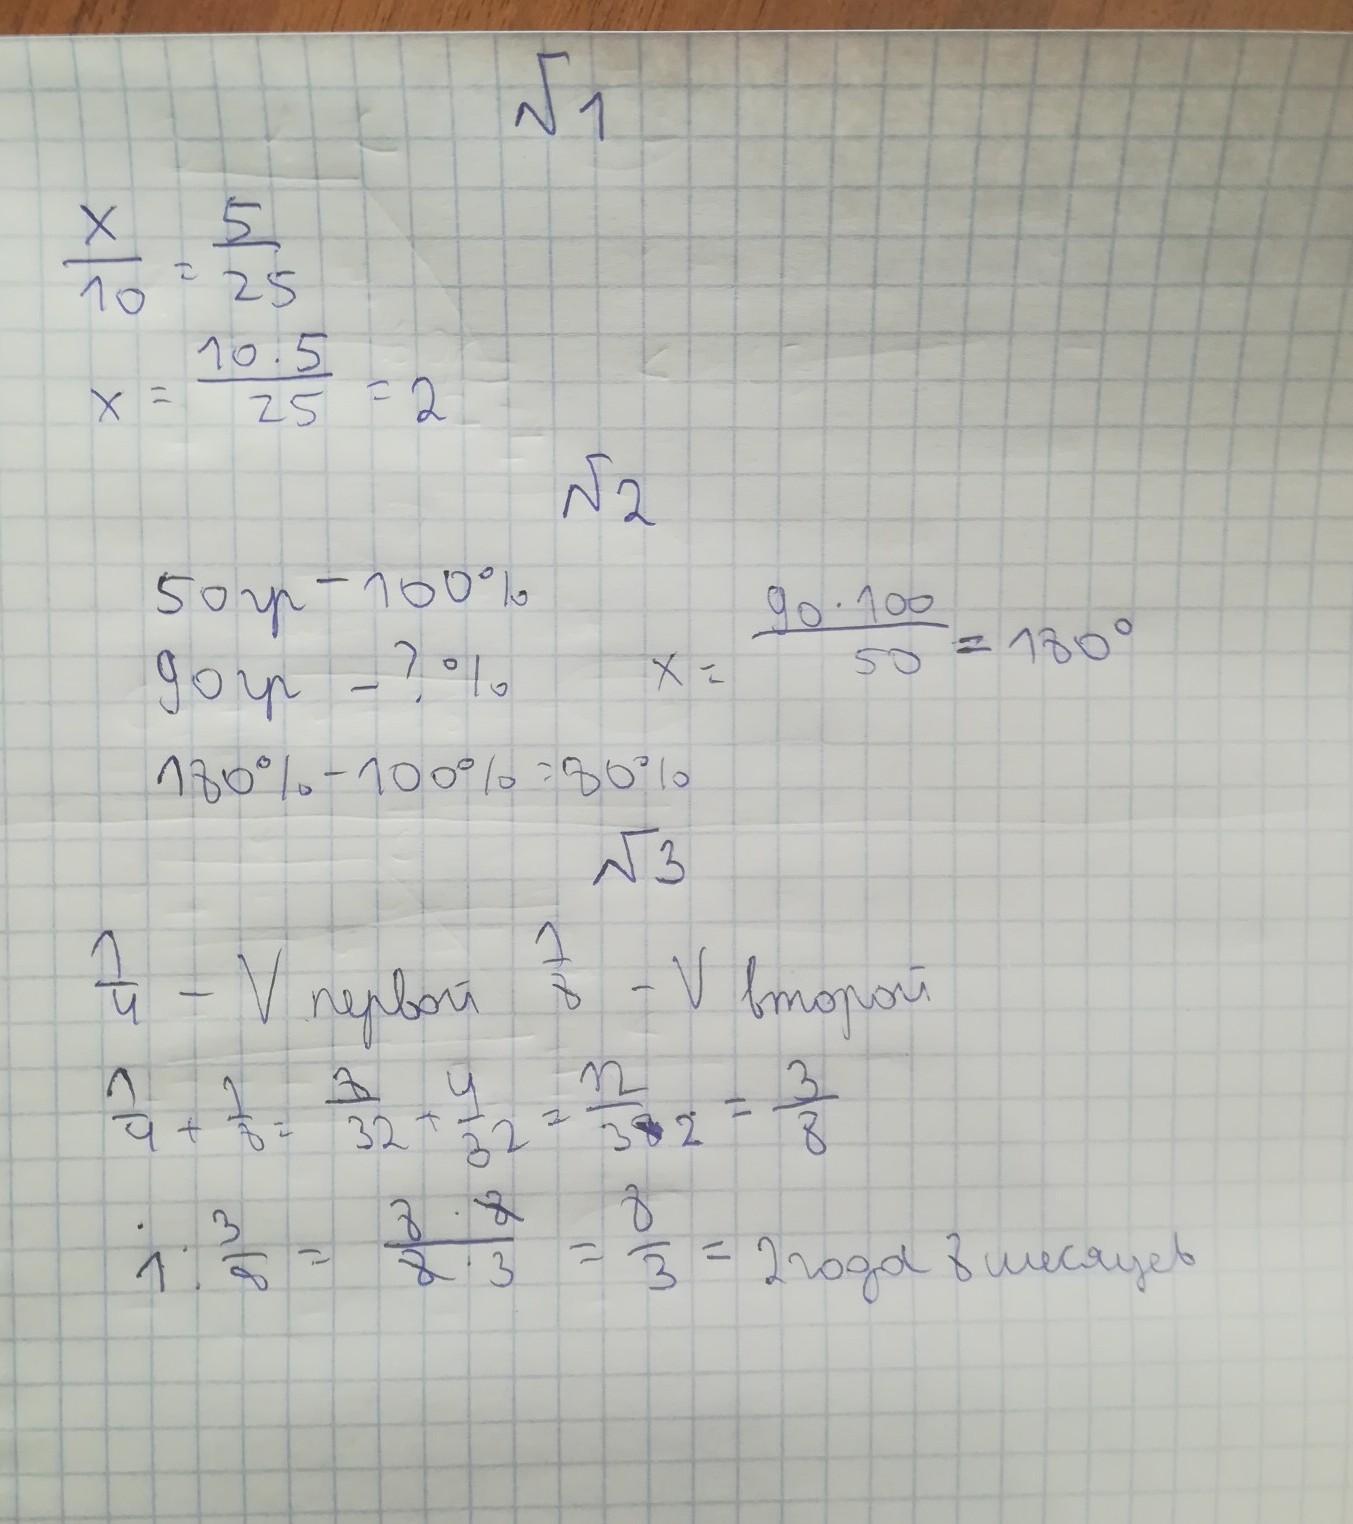 √1
x/10 = 5/25
x = 10·5/25 = 2
√2
50гр - 100%
90гр - ? %
x = 90·100/50 = 180°
180% - 100% = 80%
√3
1/4 - V первой 1/8 - V второй
1/4 + 1/8 = 8/32 + 4/32 = 12/32 = 3/8
1 : 3/8 = 8·8/8·3 = 8/3 = 2 года 8 месяцев